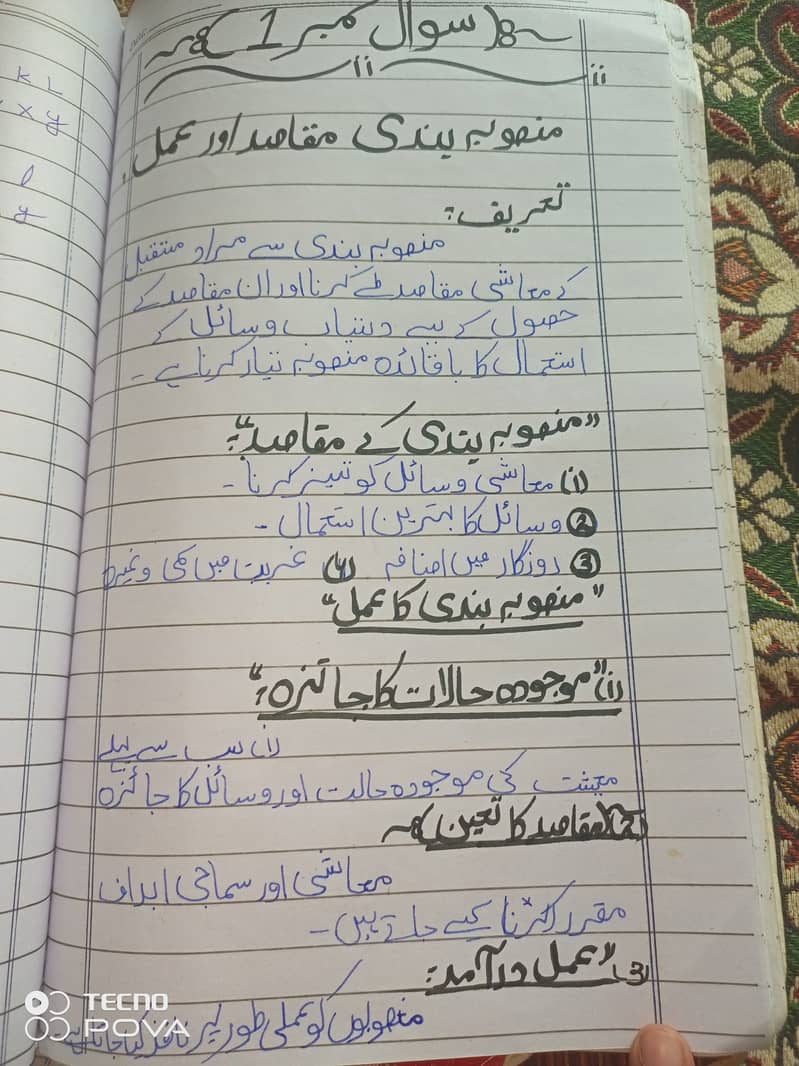 سوال نمبر 1
منصوبہ بندی مقاصد اور عمل
تعریف:
منصوبہ بندی سے مراد متقبل
کے معاشی مقاصد طے کرنا اور ان مقاصد کے
حصول کے لیے دستیاب وسائل کے
استعمال کا باقائدہ منصوبہ تیار کرنا ہے -
"منصوبہ بندی کے مقاصد":
(1) معاشی وسائل کو تیز کرنا -
2 وسائل کا بہترین استعمال -
3 روزگار میں اضافہ (4) غربت میں کمی وغیرہ
"منصوبہ بندی کا عمل"
(1) "موجودہ حالات کا جائزہ":
(1) سب سے پہلے
معیشت کی موجودہ حالت اور وسائل کا جائزہ
(2) مقاصد کا تعین
معاشی اور سماجی اہداف
مقرر کرنا کیے جاتے ہیں -
(3) "عمل درآمد:
منصوبوں کو عملی طور پر نافذ کیا جاتا ہے
K L
x y
l
y
TECNO
POVA